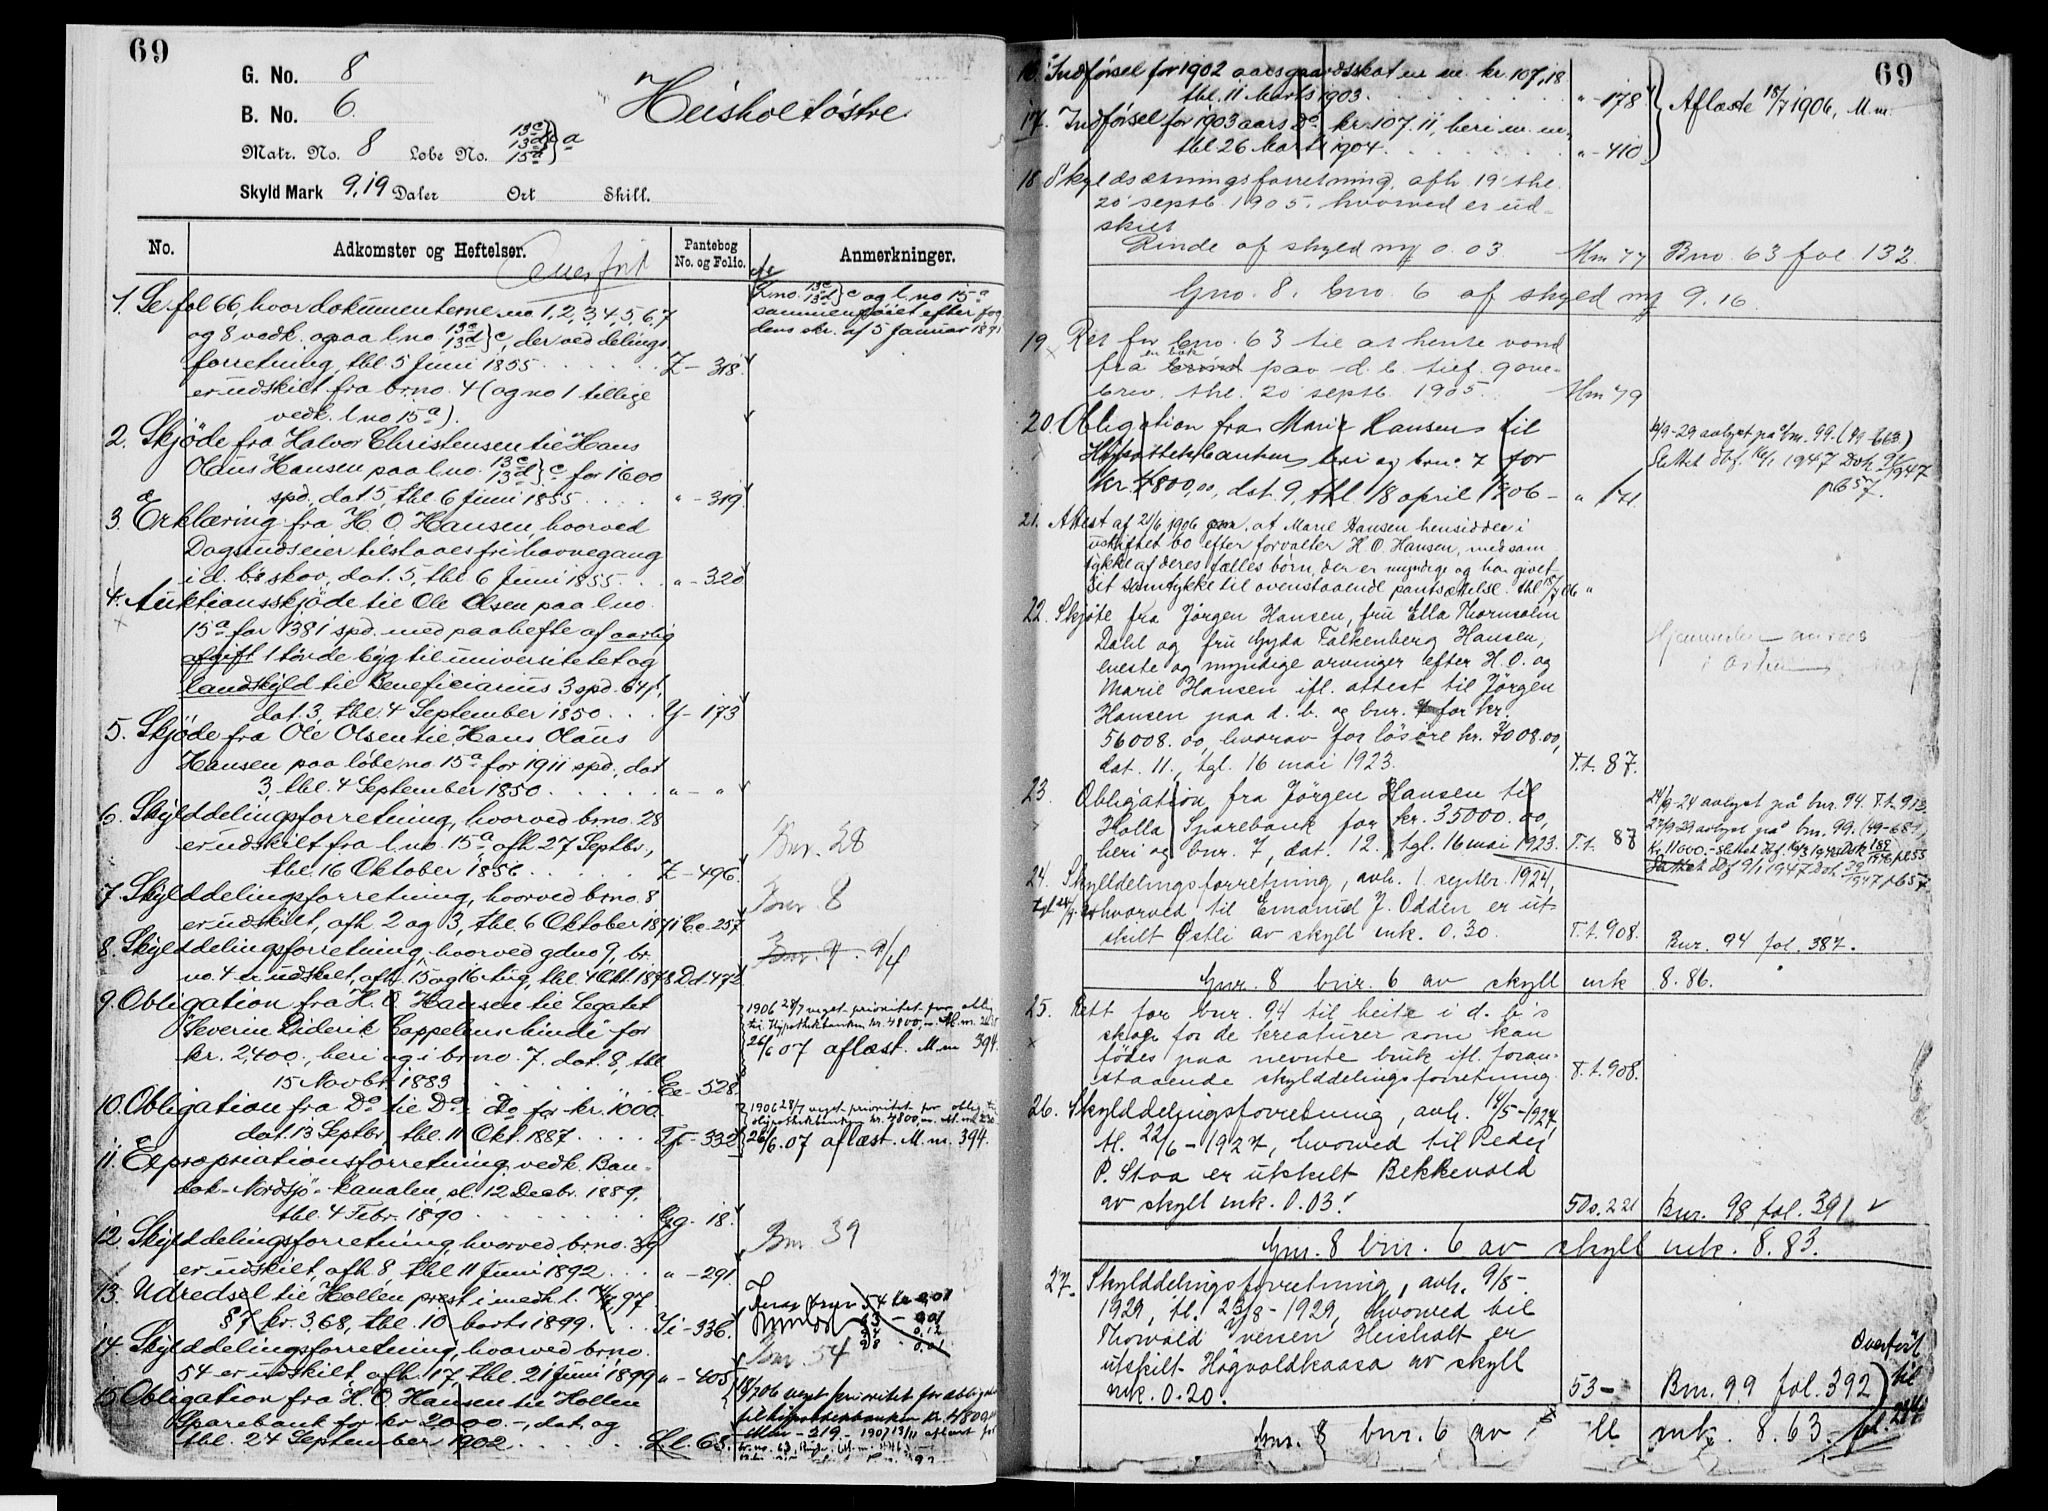 69
G. No. 8
B. No. 6.
Matr. No. 8 Løbe No. 13c 13d 15a } a
Skyld Mark 9,19 Daler Ort Skill.
Heisholt östre
No.
Adkomster og Heftelser.
Pantebog No. og Folio.
Anmerkninger.
Overfört
1. Se fol 66, hvor dokumenterne no 1, 2, 3, 4, 5, 6, 7
og 8 vedk. ogsaa l. no. 13c 13d } c, der ved delings
forretning, tbl. 5 Juni 1855 . . . . . . Z - 318.
er udskilt fra br.no. 4 (og no 1 tillige
vedk. l. no 15a).
L. no. 13c 13d } c og l. no 15a
sammenföiet efter fog
dens skr. af 5 Januar 1891
2. Skjöde fra Halvor Christensen til Hans
Olaus Hansen paa l. no. 13c 13d } c for 1600
spd, dat. 5, tbl. 6 Juni 1855 . . . . " - 319.
3. Erklæring fra H. O. Hansen, hvorved
Dagsrudseier tilstaaes fri havnegang
i d. b's skov, dat. 5, tbl. 6 Juni 1855. . . " - 320
4. Auktionsskjöde til Ole Olsen paa l. no.
15a for 1381 spd. med paahefte af aarlig
afgift 1 tönde byg til universitetet og
landskyld til Beneficiarius 3 spd. 64 s,
dat. 3, tbl. 4 September 1850 . . . Y - 173
5. Skjöde fra Ole Olsen til Hans Olaus
Hansen paa löbe no. 15a for 1911 spd., dat
3, tbl. 4 September 1850 . . . . . . " - "
6. Skylddelingsforretning, hvorved br.no. 28
er udskilt fra l. no. 15a, afh. 27 Septbr.,
tbl. 16 Oktober 1856 . . . . . . Z - 496.
Bnr. 28
7. Skylddelingsforretning, hvorved br.no. 8
er udskilt, afh 2 og 3, tbl. 6 Oktober 1871 Cc - 257
Bnr 8
8. Skylddelingsforretning, hvorved gd.no 9, br.
no. 4 er udskilt, afh. 15 og 16 Aug, tbl. 4 Okt. 1878 Dd. 472
Bnr. 4. 9/4
9. Obligation fra H. O. Hansen til Legatet
"Severin Diderik Cappelens minde" for
kr. 2,400., heri og i br.no. 7. dat. 8, tbl.
15 Novbr 1883 . . . . . . Ee - 528.
1906 28/7 veget prioritet for oblig
til Hypothekbanken kr. 4800,00. M. m.
26/6 07 aflæst. M. m 394.
10. Obligation fra Do til Do Do for kr. 1000.
dat. 13 Septbr, tbl. 11 Okt. 1887 . . . . Ff - 332
1906 28/7 veget prioritet for oblig. til
Hypothekbanken kr. 4800,00. M. m.
26/6. 07 aflæst. M. m. 394.
11. Expropriationsforretning vedk. Ban-
dak-Nordsjö-kanalen, sl. 12 Decbr. 1889,
tbl. 4 Febr. 1890 . . . . . . . . Gg - 18.
12. Skylddelingsforretning, hvorved br.no. 39
er udskilt, afh. 8, tbl. 11 Juni 1892 . . . " - 291
Bnr 39
13. Udredsel til Hollen prest i medh. l. 97.
§ 7 kr. 3,68, tbl. 10 Marts 1899. . . Ii - 336.
14. Skylddelingsforretning, hvorved br.no.
54 er udskilt, afh. 17, tbl. 21 Juni 1899 " - 405
Bnr 54
15. Obligation fra H. O. Hansen til Hollen
Sparebank for kr 2000.-, dat. og
tbl. 24 September 1902 . . . . . . Ll - 65.
veget prioritet for obligation
til hypothekbanken kr. 4800
69
16. Indförsel for 1902 aars gaardsskat m. m. kr 107,18
tbl. 11 Marts 1903. . . . . . . . " - 178
17. Indförsel for 1903 aars Do kr. 107.11, heri m. m.
tbl. 26 Marts 1904. . . . . . . . " - 410
Aflæste 18/7 1906, M. m.
18 Skyldsætningsforretning, afh. 19, tbl.
20 septb. 1905. hvorved er ud-
skilt
Rinde af skyld mk 0.03. Mm 77 Bno. 63 fol. 132.
Gno. 8. bno. 6 af skyld mk 9.16.
19 Ret for bno. 63 til at hente vand
fra en bæk paa d. b. tilf. gave-
brev. tbl. 20 septb. 1905. Mm 79
20. Obligation fra Marie Hansen til
Hypothekbanken heri og brno. 7 for
kr. 4800,00, dat. 9, tbl. 18 april 1906 - " 171.
24/9-29 avlyst på bnr. 99. (49-663)
Slettet dbf. 16/1 1947 Dok 91/1947
p 657.
21. Attest af 21/6 1906 om, at Marie Hansen hensidder i
uskiftet bo efter forvalter H. O. Hansen, med sam
tykke af deres fælles börn, der er myndige og har givet
sit samtykke til ovenstaaende pantsættelse. tbl. 18/7 06 "
22. Skjöte fra Jörgen Hansen, fru Ella Thornsohn
Dahl og fru Gyda Falkenberg Hansen,
eneste og myndige arvinger efter H. O. og
Marie Hansen ifl. attest til Jörgen
Hansen paa d. b. og bnr. 7 for kr.
56008.00, hvorav for lösöre kr. 7008.00,
dat. 11., tgl. 16 mai 1923. T.t. 87.
23. Obligation fra Jörgen Hansen til
Holla Sparebank for kr. 35000.00,
heri og bnr. 7, dat. 12., tgl. 16 mai 1923. T.t. 87
24/9-24 avlyst på bnr. 94. T.t. 912.
27/9-29 avlyst på bnr. 99. (49-684)
24. Skylddelingsforretning, avh. 1. septbr. 1924,
hvorved til Emanuel J. Odden er ut
skilt Östli av skyld mk. 0.30. T.t. 908. Bnr. 94 fol. 387.
Gnr. 8 bnr. 6 av skyld mk 8.86.
25. Rett for bnr. 94 til beite i d. b's
skog for de kreaturer som kan
födes paa nevnte bruk ifl. foran-
staaende skylddelingsforretning. T.t. 908.
26. Skylddelingsforretning, avh. 14/5-1927,
tl. 22/6-1927, hvorved til Peder
P. Stoa er utskilt Bekkevold
av skyld mk. 0.03. 50 s. 221 Bnr. 98 fol. 391
Gnr. 8 bnr. 6 av skyld mk. 8.83.
27. Skylddelingsforretning, avh. 9/8-
1929, tl. 23/8-1929, hvorved til
Thorvald Iversen Heisholt er
utskilt Högvoldkaasa av skyld
mk. 0.20. 53 - Bnr. 99 fol. 392
Overfört
til
Gnr. 8 bnr. 6 av mk. 8.63.